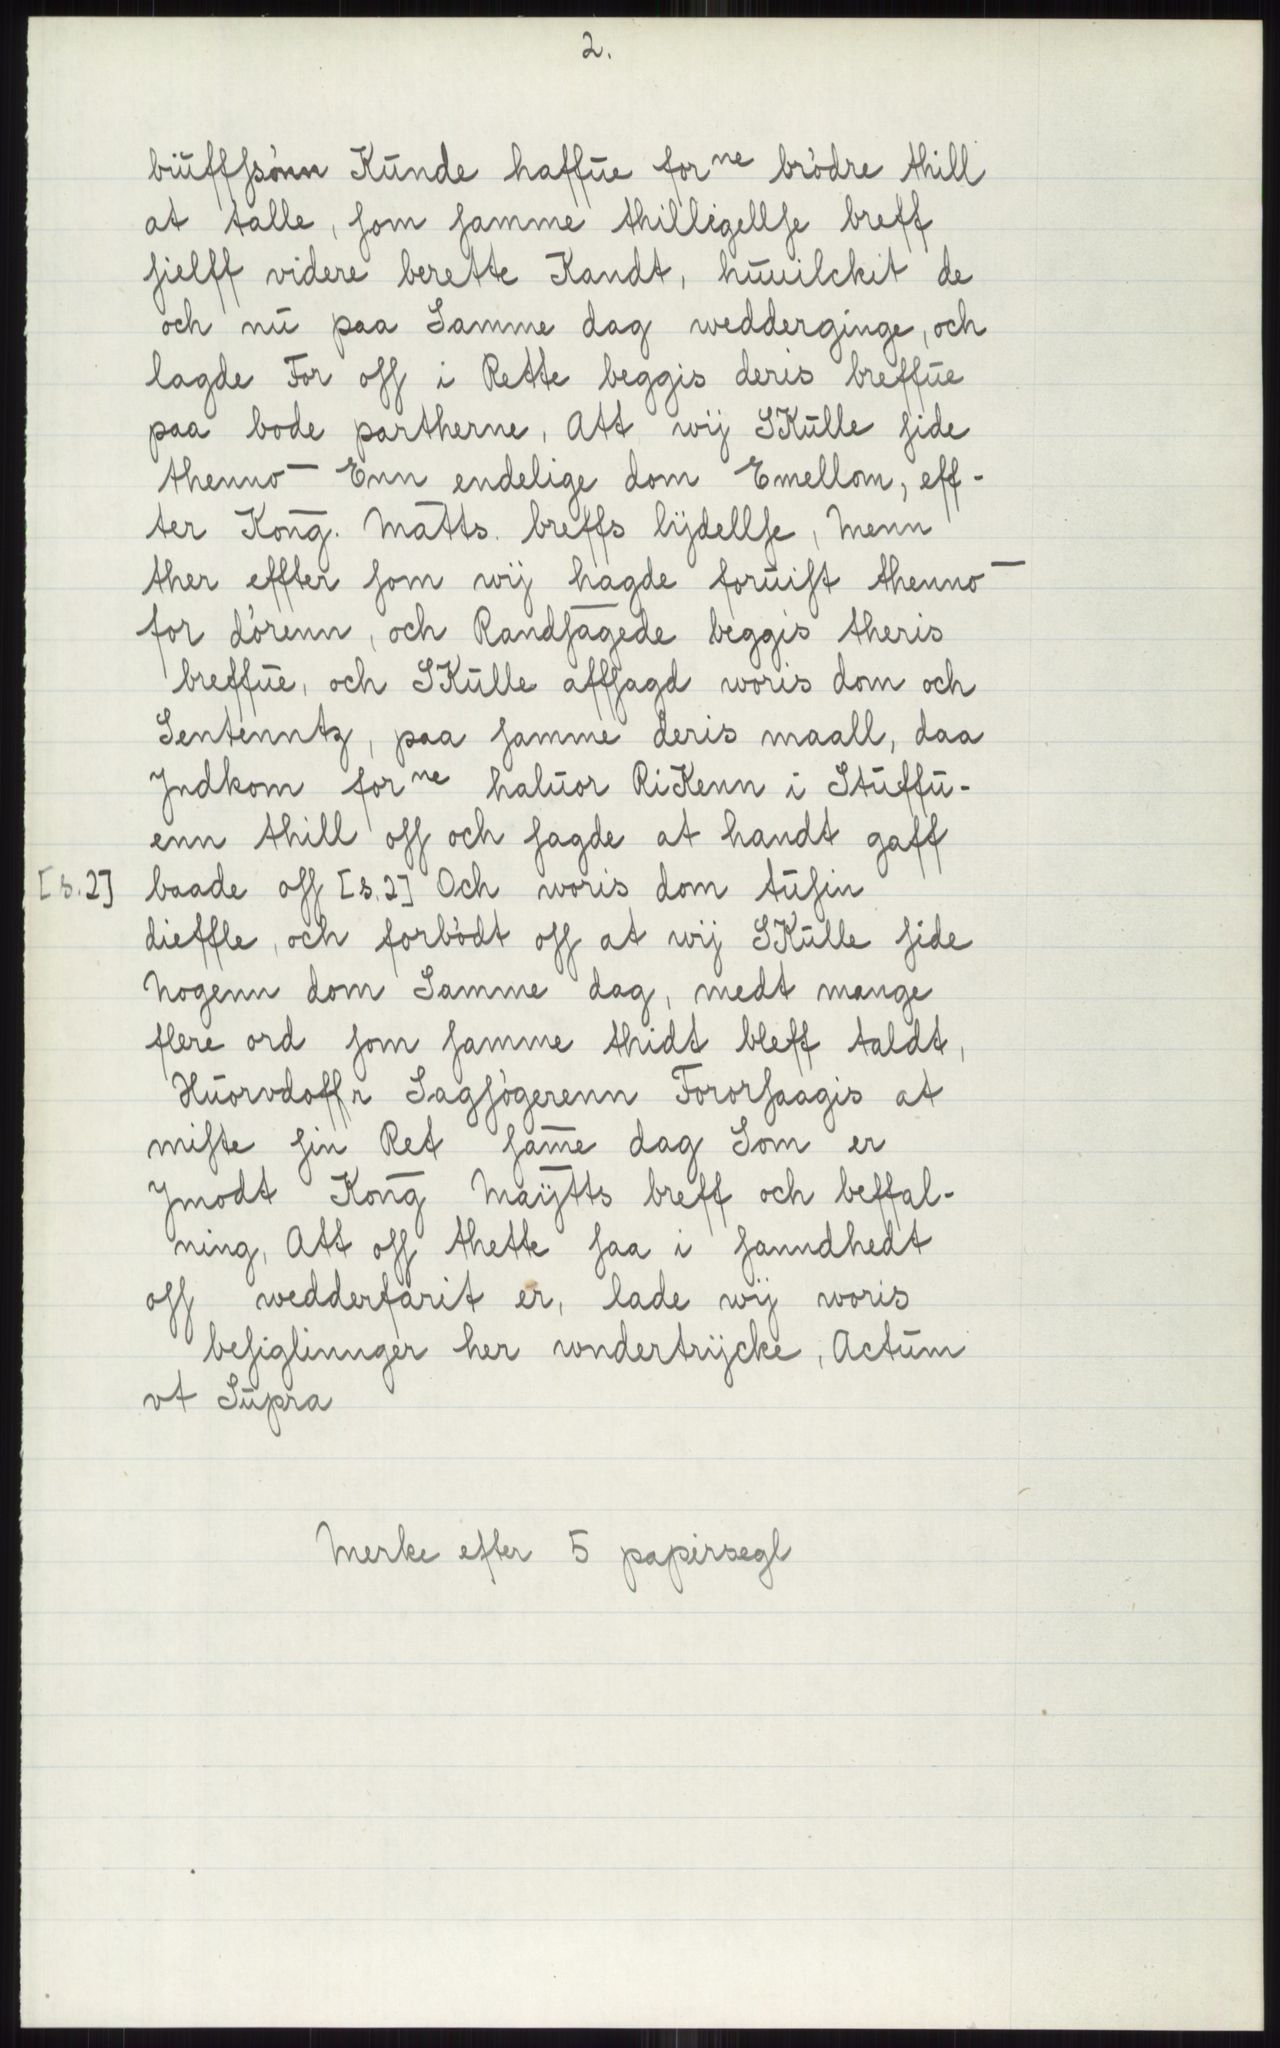 2.
biūffſsónn Kūnde haffūe for ⁿᵉ bródre thill
at talle, ſom ſamme thilligellſe breff
ſielff videre berette Kandt, hūuilckit de
och nū paa Samme dag wedderginge, och
lagde For oſſ i Rette beggis deris breffūe
paa bode partherne, Att wij SKūlle ſide
thenno̅ Enn endelige dom Emellom, eff-
ter Kon̅g. Ma̅tts. breffs lÿdellſe, Menn
ther effter ſom wij hagde forūiſt thenno̅
for dórenn, och Randſagede beggis theris
breffūe, och SKūlle affſagd woris dom och
Sentenntz, paa ſamme deris maall, daa
Jndkom for ⁿᵉ halūor RiKenn i Stūffū-
enn thill oſſ och ſagde at handt gaff
[s.2] baade oſſ [s.2] Och woris dom tūſin
dieffle, och forbódt oſſ at wij SKūlle ſide
Nogenn dom Samme dag, medt mange
flere ord ſom ſamme thidt bleff taldt,
Hūorvdoffr Sagſógerenn Fororſaagis at
miſte ſin Ret ſam̅e dag Som er
Jmodt Kon̅g Maÿtts breff och beffal-
ning, Att oſſ thette ſaa i ſanndhedt
oſſ wedderfarit er, lade wij woris
beſiglinnger her wndertrÿcke, Actūm
vt Sūpra
Merke efter 5 papirsegl